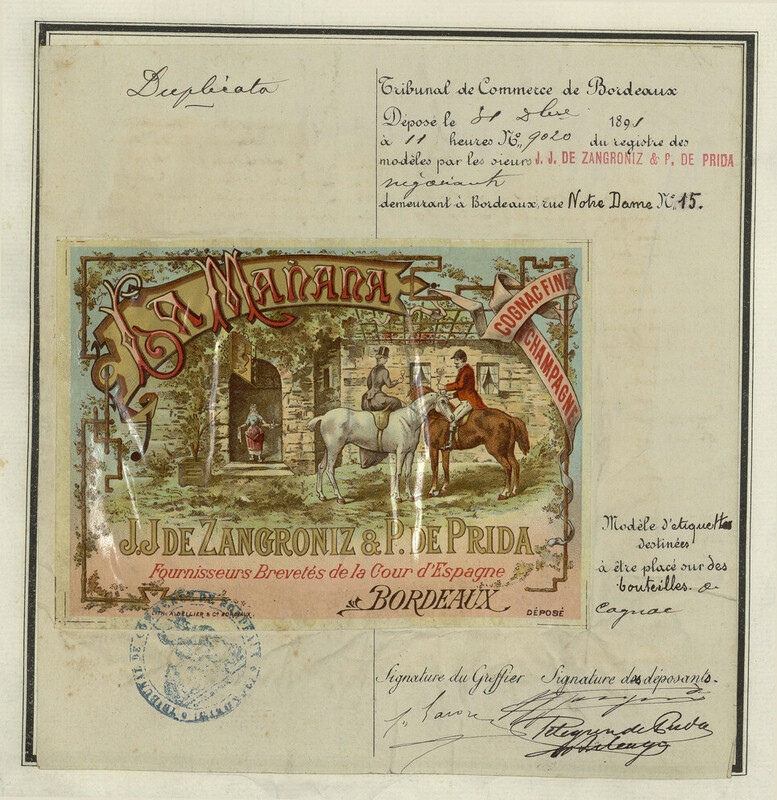 Duplicata
Tribunal de Commerce de Bordeaux
Déposé le 31 Xbre 1891
à 11 heures No. 9020 du registre des
modèles par les sieurs J. J. DE ZANGRONIZ & P. DE PRIDA
négociants
demeurant à Bordeaux, rue Notre Dame No. 15.
La Mañana
COGNAC FINE
CHAMPAGNE
J.J DE ZANGRONIZ & P. DE PRIDA
Fournisseurs Brevetés de la Cour d'Espagne
BORDEAUX
DÉPOSÉ
Modèle d'etiquette
destinées
à être placé sur des
bouteilles. de
Cognac
TRIBUNAL DE COMMERCE DE BORDEAUX
Signature du Greffier Signature des déposants.